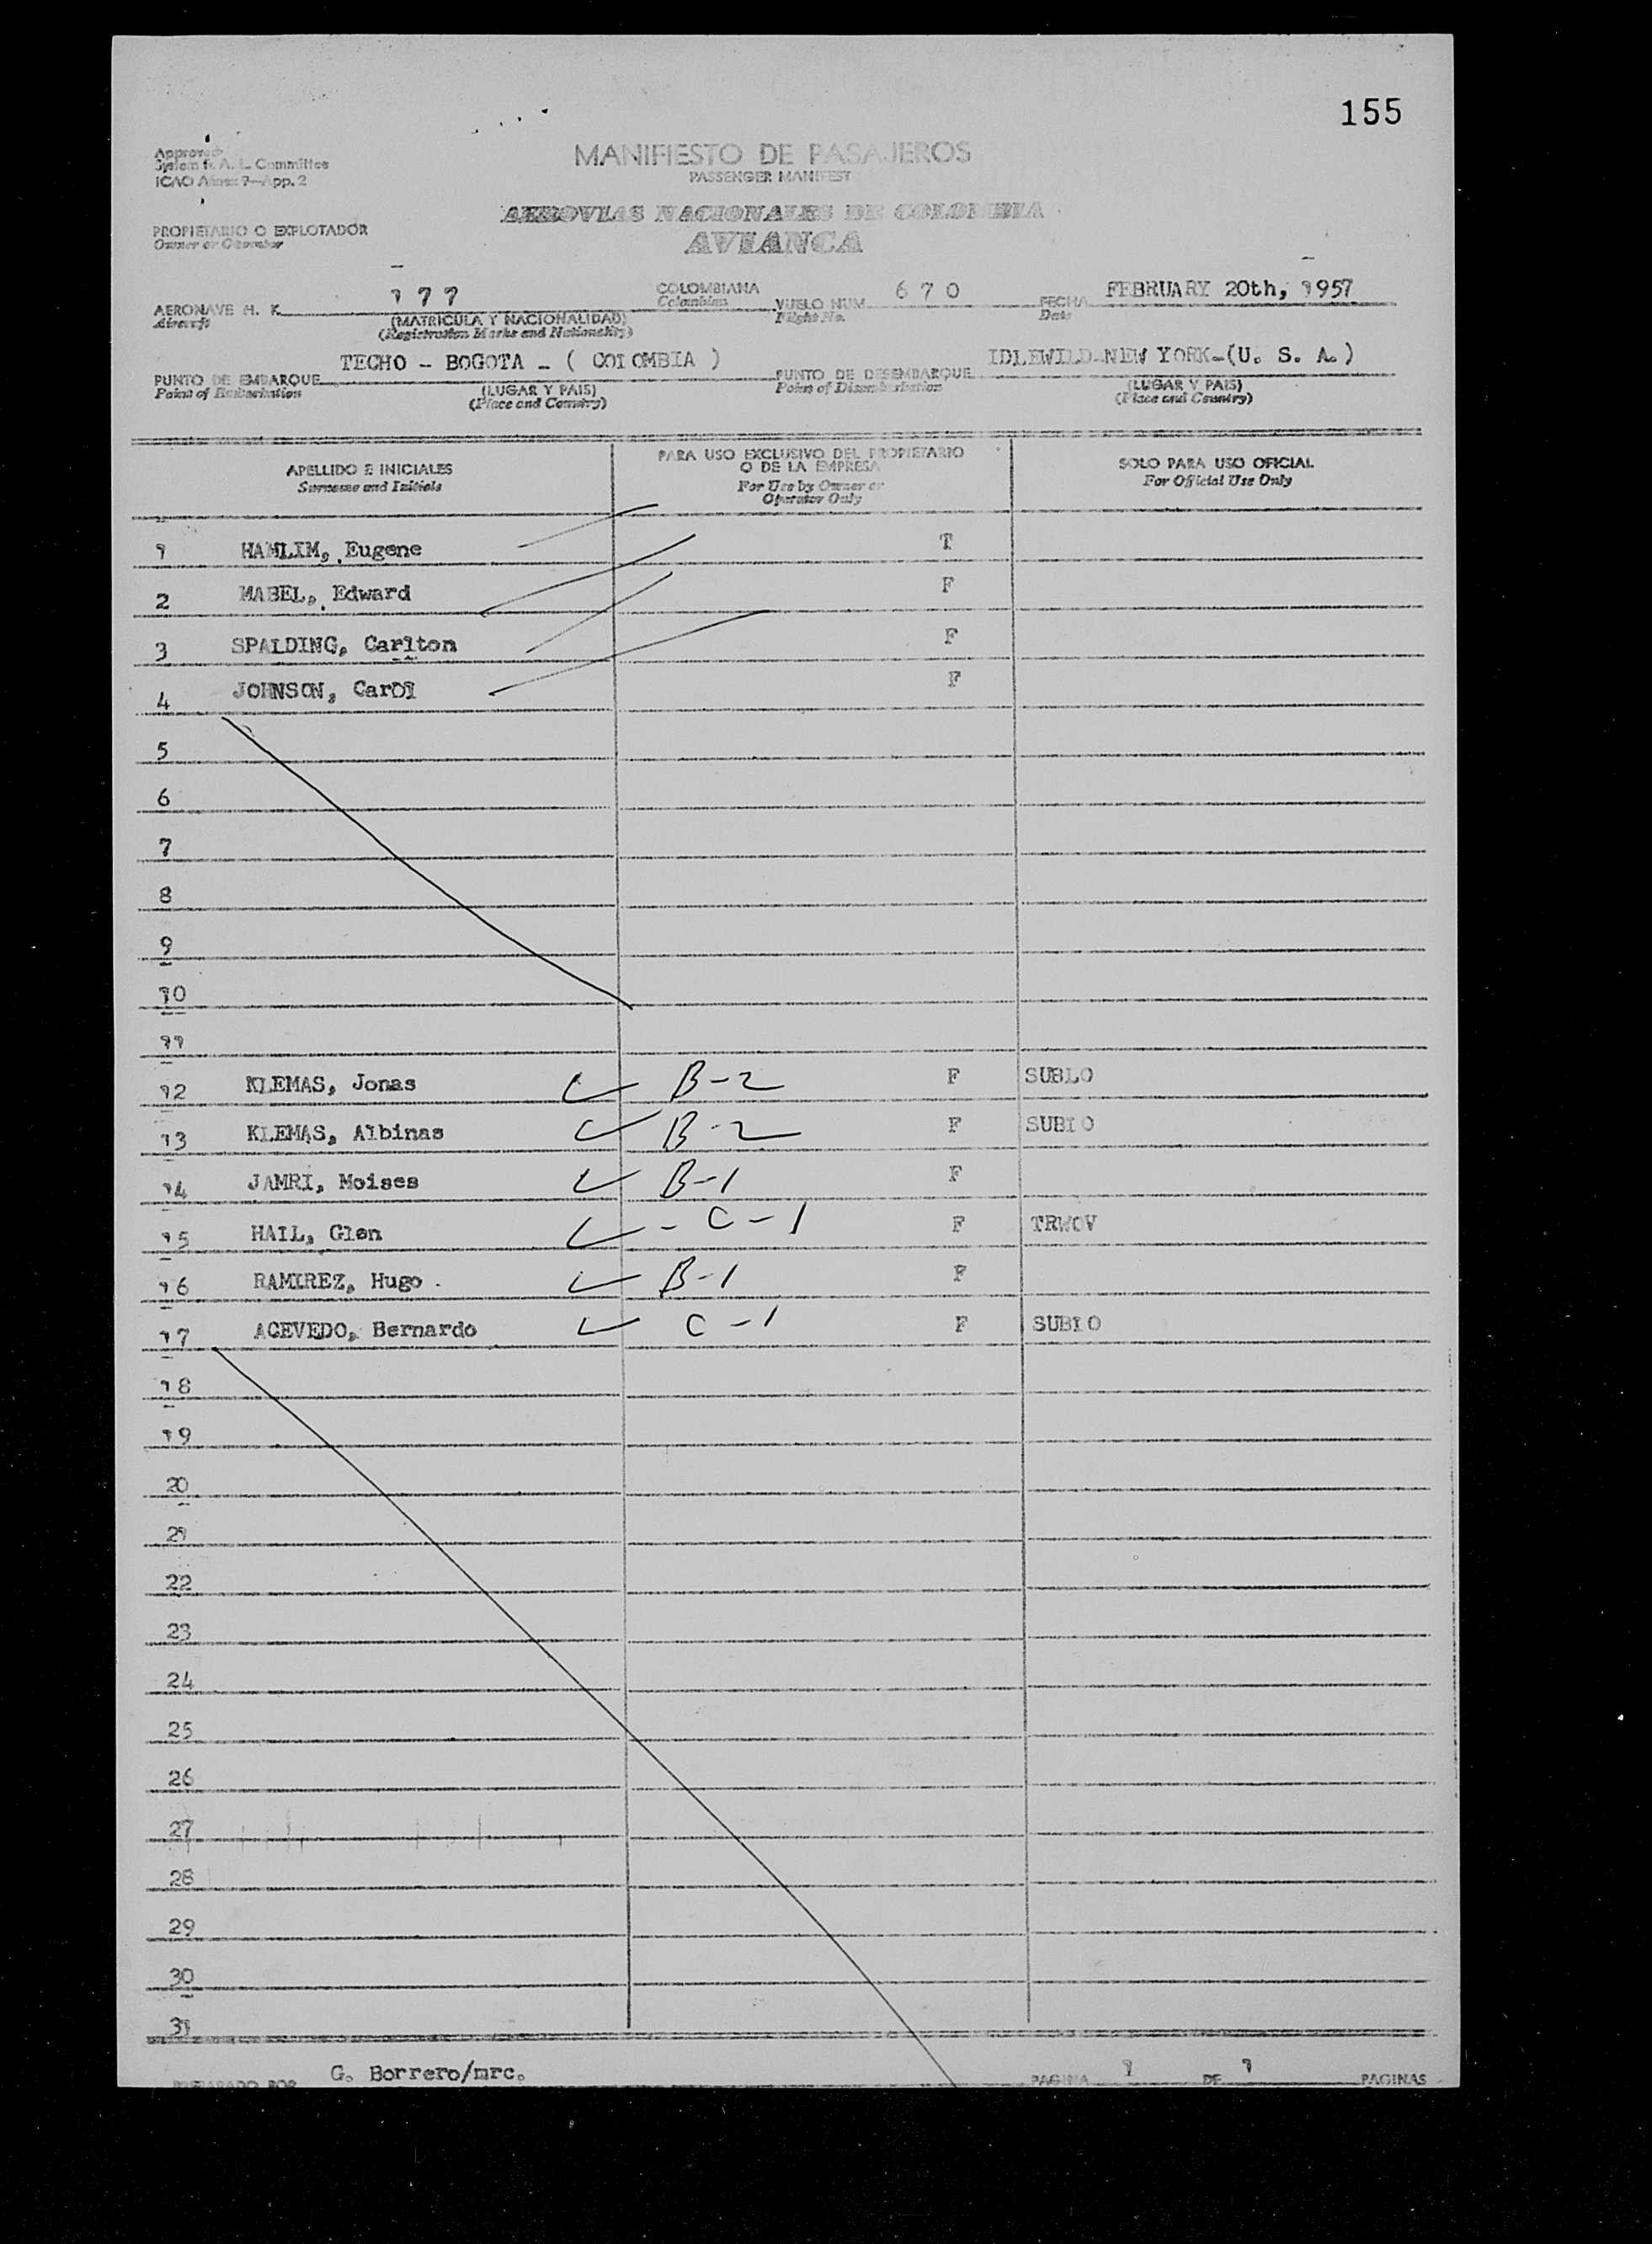 155
Approved
System F. A. L. Committee
ICAO Annex 9—App. 2
MANIFIESTO DE PASAJEROS
PASSENGER MANIFEST
AEROVIAS NACIONALES DE COLOMBIA
AVIANCA
PROPIETARIO O EXPLOTADOR
Owner or Operator
AERONAVE H. K. 177 COLOMBIANA VUELO NUM. 670 FECHA FEBRUARY 20th, 1957
Aircraft (MATRICULA Y NACIONALIDAD) Colombian Flight No. Date
(Registration Marks and Nationality)
PUNTO DE EMBARQUE TECHO - BOGOTA - ( COLOMBIA ) PUNTO DE DESEMBARQUE IDLEWILD-NEW YORK-(U. S. A.)
Point of Embarkation (LUGAR Y PAIS) Point of Disembarkation (LUGAR Y PAIS)
(Place and Country) (Place and Country)
APELLIDO E INICIALES
Surname and Initials
PARA USO EXCLUSIVO DEL PROPIETARIO
O DE LA EMPRESA
For Use by Owner or
Operator Only
SOLO PARA USO OFICIAL
For Official Use Only
1 HAMLIM, Eugene T
2 MABEL, Edward F
3 SPALDING, Carlton F
4 JOHNSON, Carol F
5
6
7
8
9
10
11
12 KLEMAS, Jonas B-2 F SUBLO
13 KLEMAS, Albinas B-2 F SUBLO
14 JAMRI, Moises B-1 F
15 HAIL, Glen - C-1 F TRWOV
16 RAMIREZ, Hugo . B-1 F
17 ACEVEDO, Bernardo C-1 F SUBLO
18
19
20
21
22
23
24
25
26
27
28
29
30
31
PREPARADO POR G. Borrero/mrc. PAGINA 1 DE 1 PAGINAS